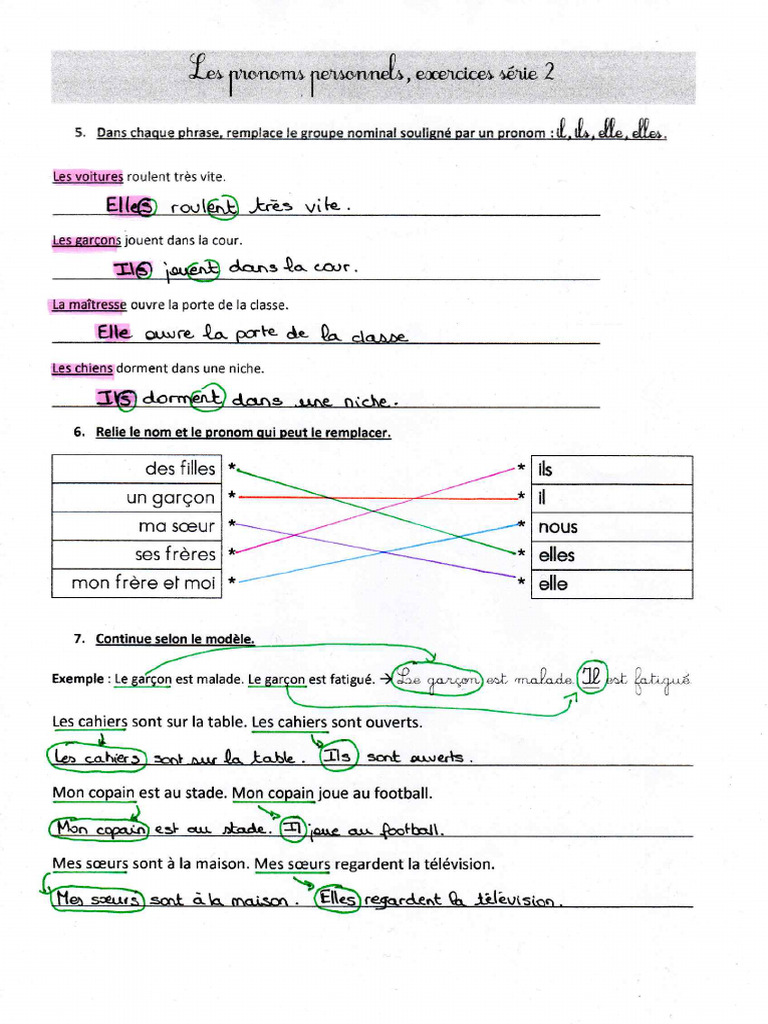 Les pronoms personnels, exercices série 2
5. Dans chaque phrase, remplace le groupe nominal souligné par un pronom : il, ils, elle, elles.
Les voitures roulent très vite.
Elles roulent très vite.
Les garçons jouent dans la cour.
Ils jouent dans la cour.
La maîtresse ouvre la porte de la classe.
Elle ouvre la porte de la classe
Les chiens dorment dans une niche.
Ils dorment dans une niche.
6. Relie le nom et le pronom qui peut le remplacer.
des filles * * ils
un garçon * * il
ma sœur * * nous
ses frères * * elles
mon frère et moi * * elle
7. Continue selon le modèle.
Exemple : Le garçon est malade. Le garçon est fatigué. → Le garçon est malade. Il est fatigué
Les cahiers sont sur la table. Les cahiers sont ouverts.
Les cahiers sont sur la table. Ils sont ouverts.
Mon copain est au stade. Mon copain joue au football.
Mon copain est au stade. Il joue au football.
Mes sœurs sont à la maison. Mes sœurs regardent la télévision.
Mes sœurs sont à la maison. Elles regardent la télévision.